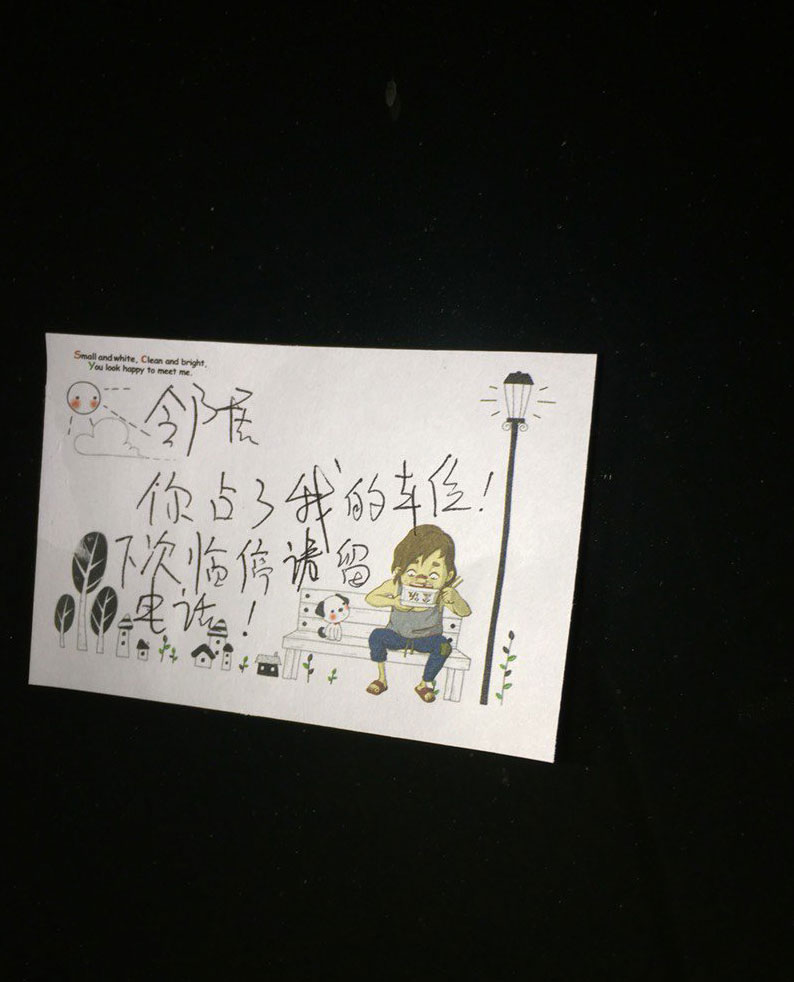 Small and white, Clean and bright,
You look happy to meet me.
邻居
你占了我的车位！
下次临停请留
电话！